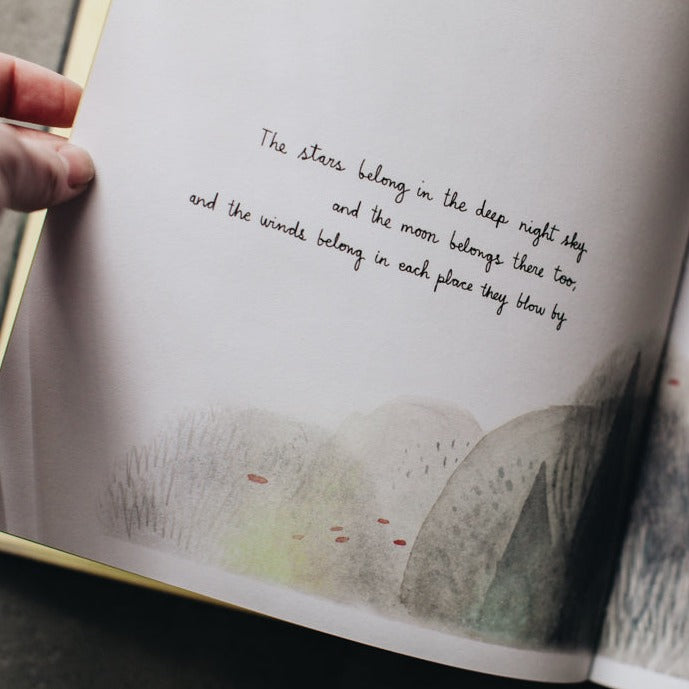 The stars belong in the deep night sky
and the moon belongs there too,
and the winds belong in each place they blow by